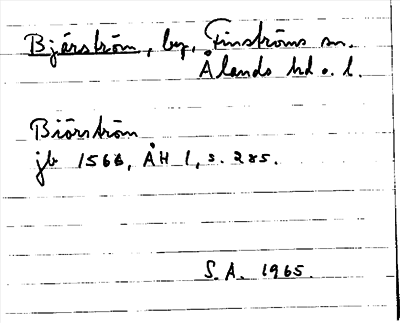 Bjärström, by, Finströms sn.
Ålands hd o. l.
Biörström
jb 1566, ÅH 1, s. 285.
S.A. 1965.